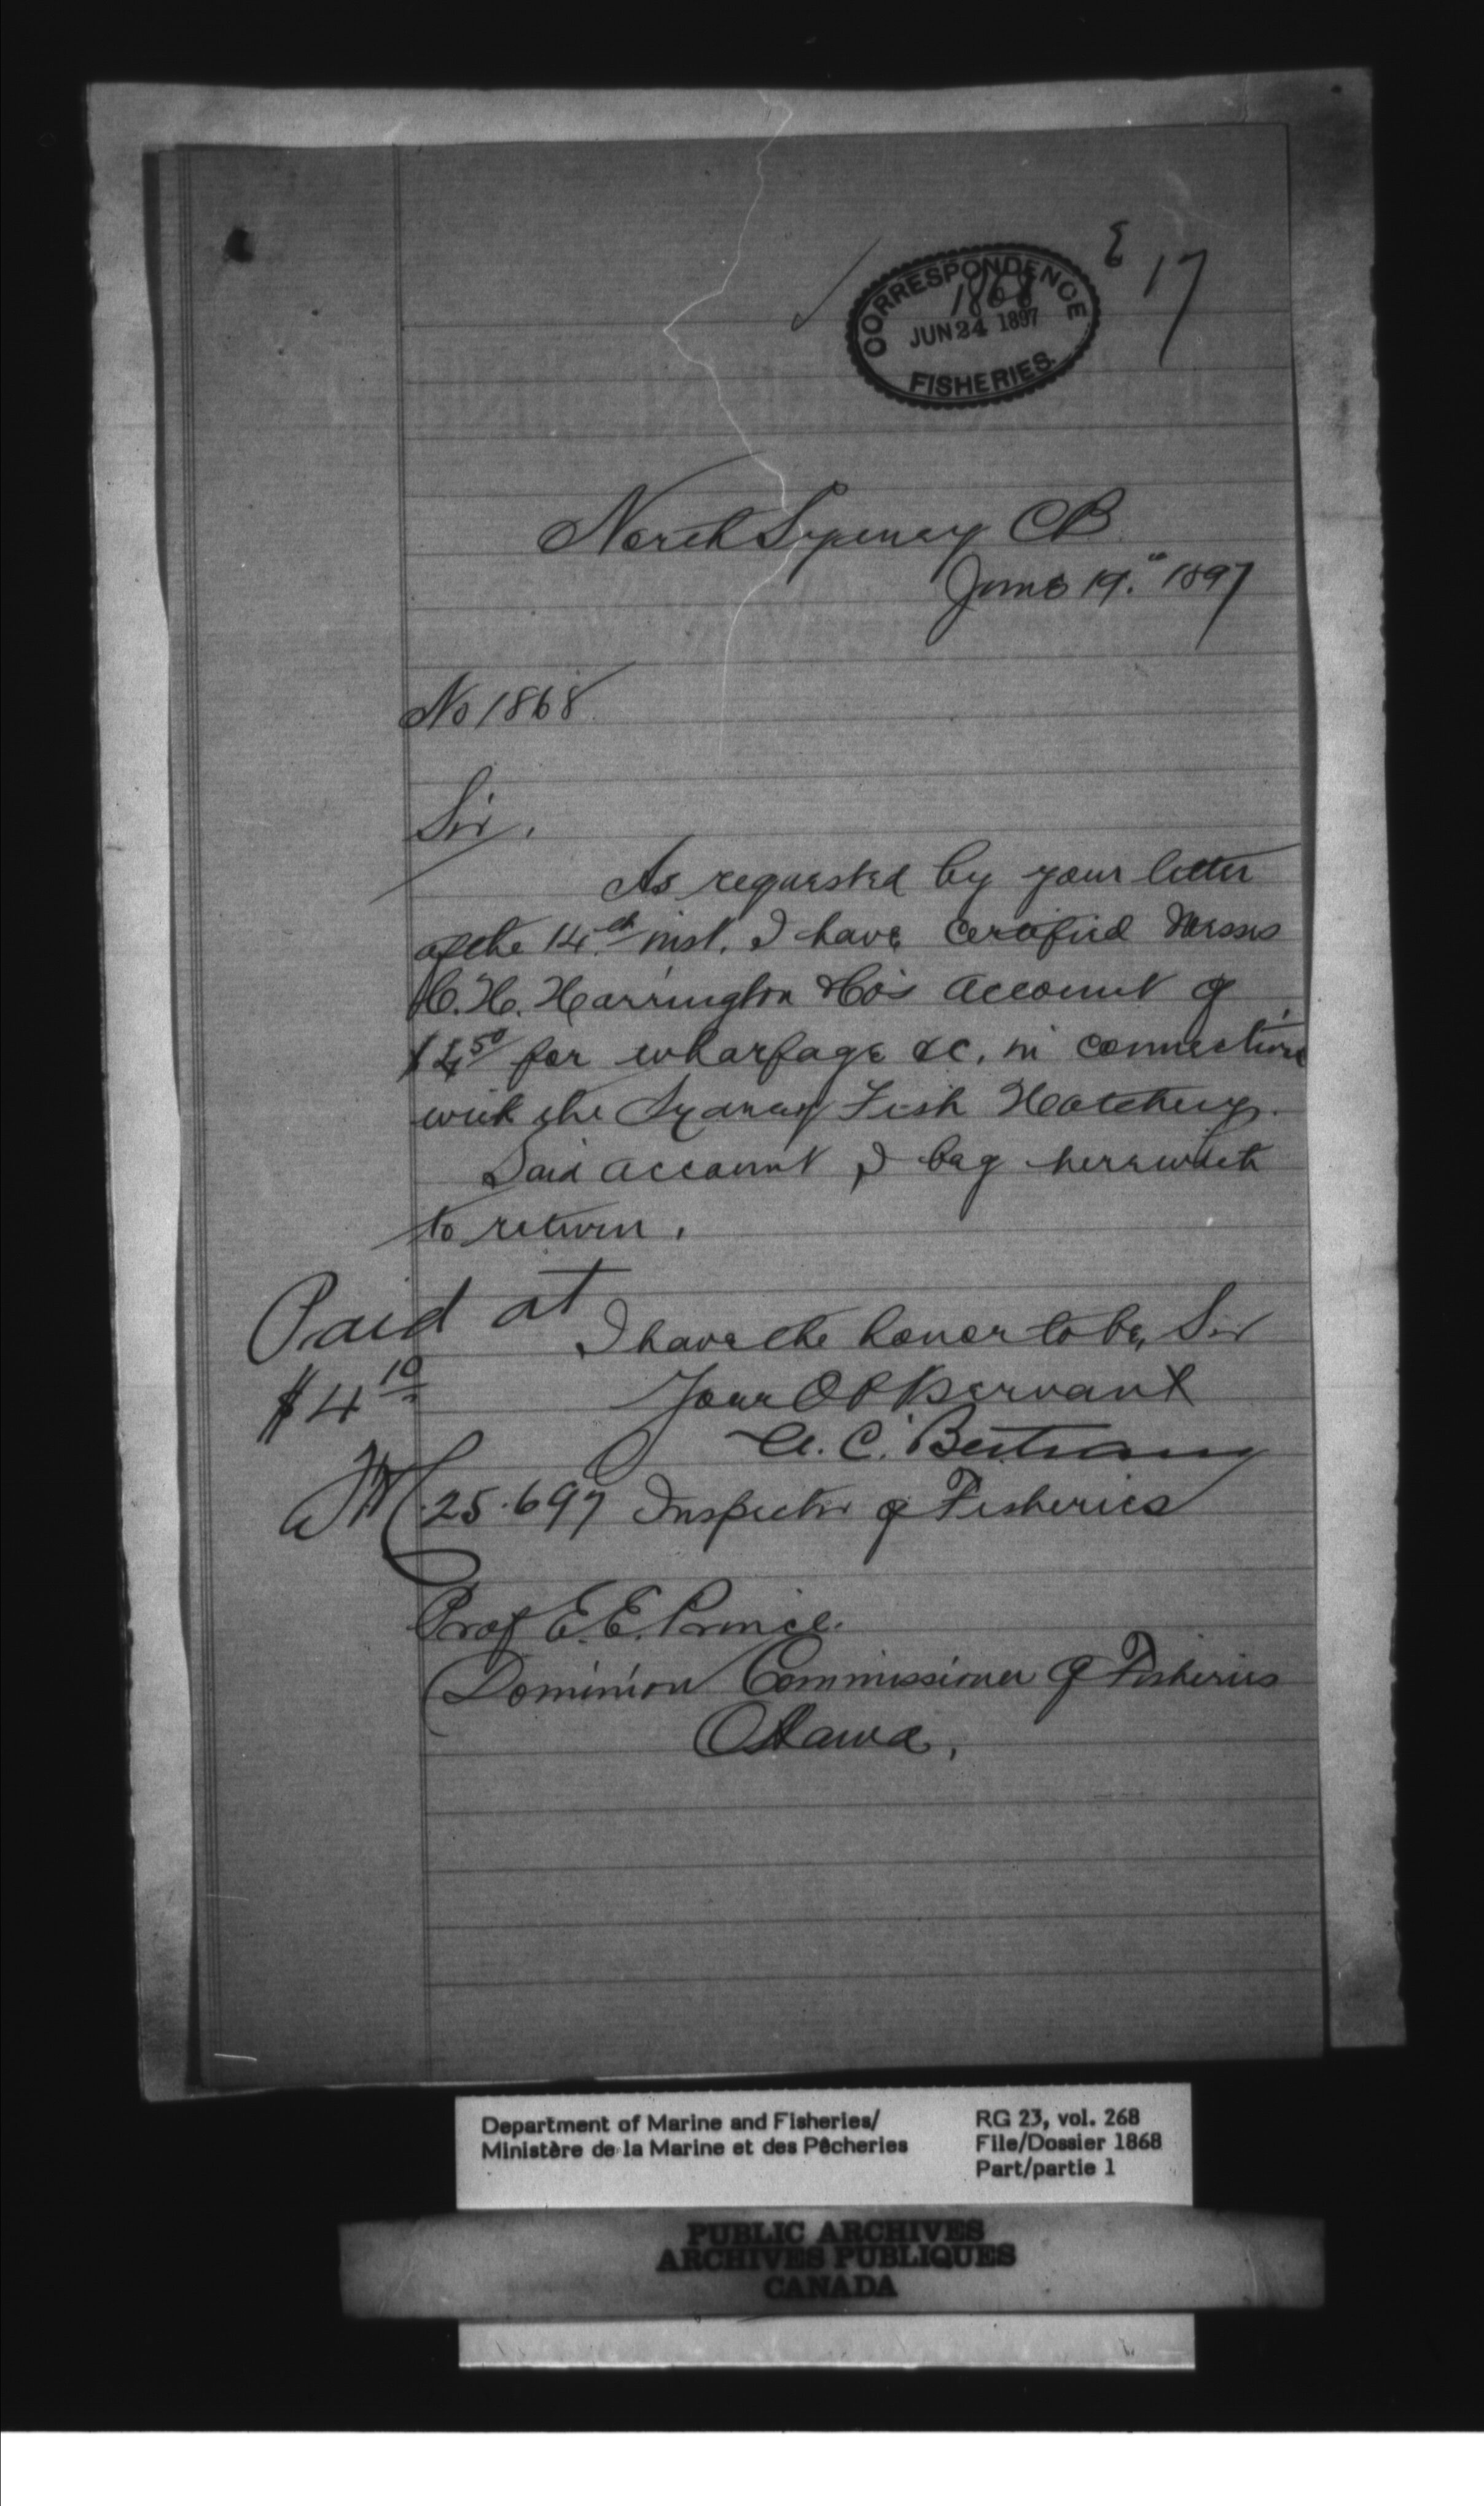 E 17
CORRESPONDENCE
1868
JUN 24 1897
FISHERIES.
North Sydney CB
June 19." 1897
No 1868
Sir,
As requested by your letter
of the 14th inst. I have certified Messrs
C. H. Harrington & Co's account of
$4 50 for wharfage &c. in connection
with the Sydney Fish Hatchery.
Said account I beg herewith
to return.
Paid at
$4 10
I have the honor to be, Sir
Your Ob Servant
A. C. Bertram
25.6.97 Inspector of Fisheries
Prof E. E. Prince.
Dominion Commissioner of Fisheries
Ottawa,
Department of Marine and Fisheries/
Ministère de la Marine et des Pêcheries
RG 23, vol. 268
File/Dossier 1868
Part/partie 1
PUBLIC ARCHIVES
ARCHIVES PUBLIQUES
CANADA